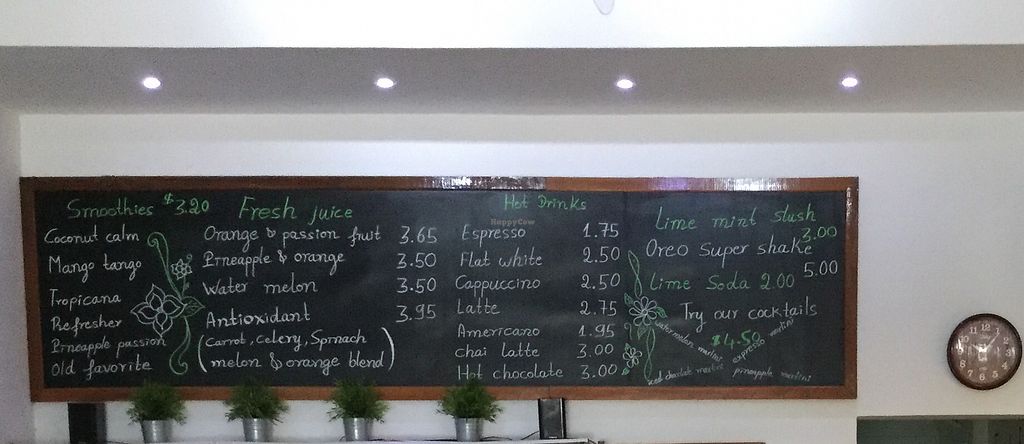 Smoothies $3.20
Coconut calm
Mango tango
Tropicana
Refresher
Pineapple passion
Old favorite
Fresh juice
Orange & passion fruit 3.65
Pineapple & orange 3.50
Water melon 3.50
Antioxidant 3.95
(Carrot, Celery, Spinach
melon & orange blend)
Hot Drinks
Espresso 1.75
Flat white 2.50
Cappuccino 2.50
Latte 2.75
Americano 1.95
chai latte 3.00
Hot chocolate 3.00
Lime mint slush 3.00
Oreo Super shake 5.00
Lime Soda 2.00
Try our cocktails
$4.50
watermelon martini
expresso martini
iced chocolate martini
pineapple martini
HappyCow
12
1
2
3
4
5
6
7
8
9
10
11